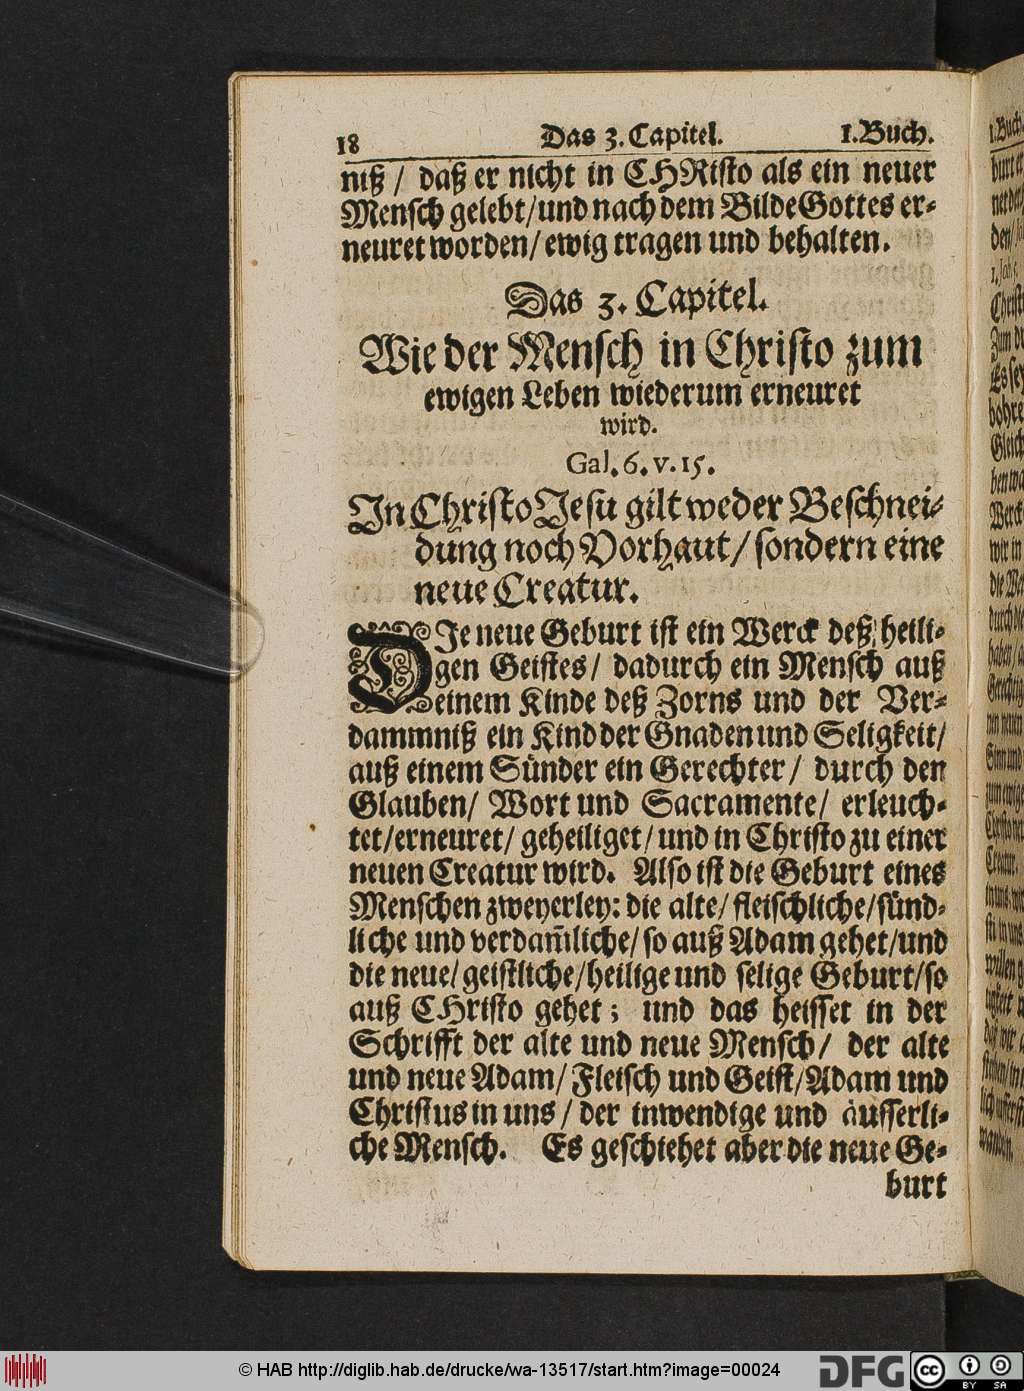 18 Das 3. Capitel. 1. Buch.
niß / daß er nicht in CHRisto als ein neuer
Mensch gelebt / und nach dem Bilde Gottes er-
neuret worden / ewig tragen und behalten.
Das 3. Capitel.
Wie der Mensch in Christo zum
ewigen Leben wiederum erneuret
wird.
Gal. 6. v. 15.
In Christo Jesu gilt weder Beschnei-
dung noch Vorhaut / sondern eine
neue Creatur.
DIe neue Geburt ist ein Werck deß heili-
gen Geistes / dadurch ein Mensch auß
einem Kinde deß Zorns und der Ver-
dammniß ein Kind der Gnaden und Seligkeit /
auß einem Sünder ein Gerechter / durch den
Glauben / Wort und Sacramente / erleuch-
tet / erneuret / geheiliget / und in Christo zu einer
neuen Creatur wird. Also ist die Geburt eines
Menschen zweyerley: die alte / fleischliche / sünd-
liche und verdam̃liche / so auß Adam gehet / und
die neue / geistliche / heilige und selige Geburt / so
auß CHristo gehet; und das heisset in der
Schrifft der alte und neue Mensch / der alte
und neue Adam / Fleisch und Geist / Adam und
Christus in uns / der inwendige und äusserli-
che Mensch. Es geschiehet aber die neue Ge-
burt
© HAB http://diglib.hab.de/drucke/wa-13517/start.htm?image=00024
DFG
cc BY SA